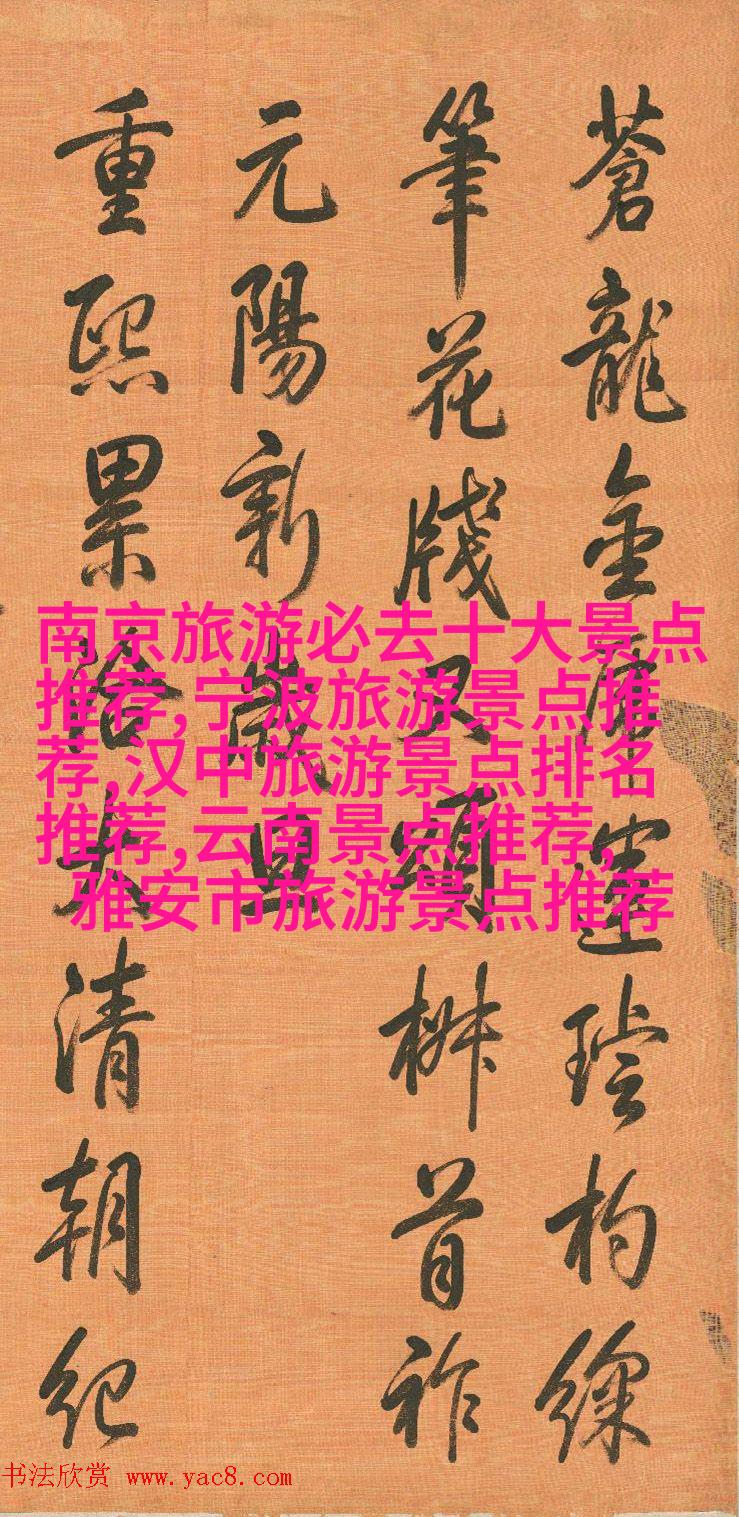 蒼龍金杓
筆花牋又頌椒首祚
元陽新歲旦
重熙累洽大清朝紀
南京旅游必去十大景点
推荐,宁波旅游景点推
荐,汉中旅游景点排名
推荐,云南景点推荐,
雅安市旅游景点推荐
书法欣赏 www.yac8.com